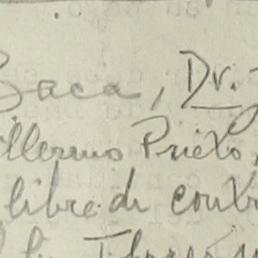 Baca, Dr.
illermo Prieto,
libre di contr